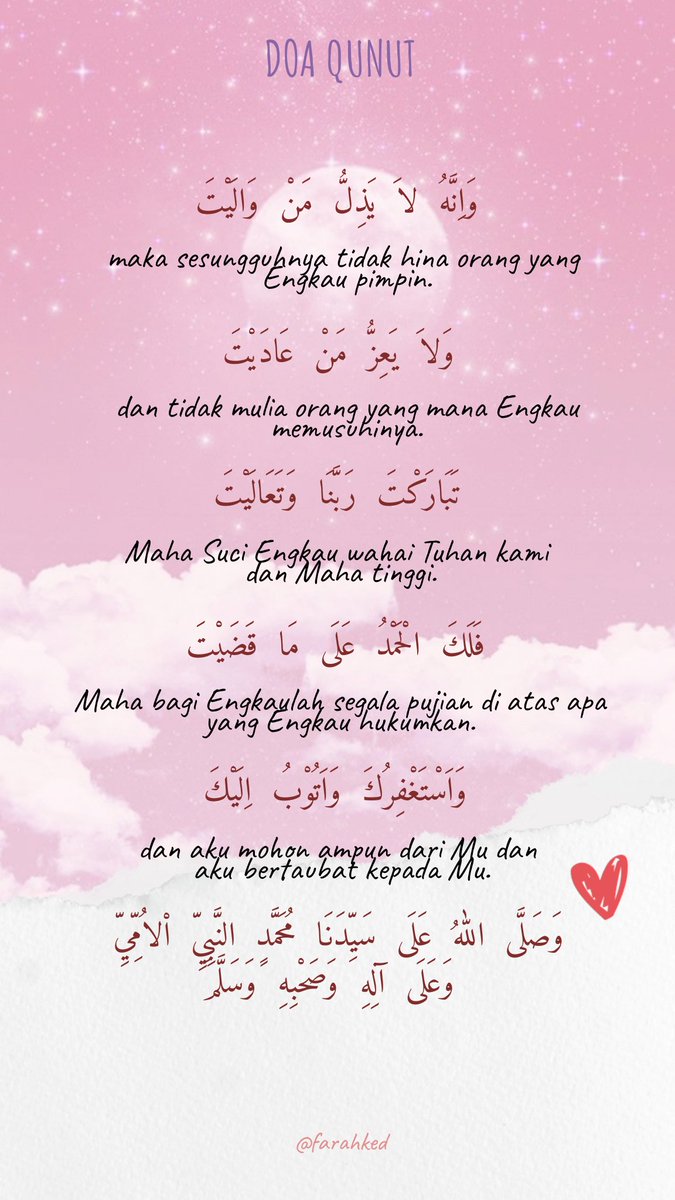 DOA QUNUT
وَاِنَّهُ لاَ يَذِلُّ مَنْ وَالَيْتَ
maka sesungguhnya tidak hina orang yang
Engkau pimpin.
وَلاَ يَعِزُّ مَنْ عَادَيْتَ
dan tidak mulia orang yang mana Engkau
memusuhinya.
تَبَارَكْتَ رَبَّنَا وَتَعَالَيْتَ
Maha Suci Engkau wahai Tuhan kami
dan Maha tinggi.
فَلَكَ الْحَمْدُ عَلَى مَا قَضَيْتَ
Maha bagi Engkaulah segala pujian di atas apa
yang Engkau hukumkan.
وَاَسْتَغْفِرُكَ وَاَتُوْبُ اِلَيْكَ
dan aku mohon ampun dari Mu dan
aku bertaubat kepada Mu.
وَصَلَّى اللهُ عَلَى سَيِّدَنَا مُحَمَّدٍ النَّبِيِّ اْلاُمِّيِّ
وَعَلَى آلِهِ وَصَحْبِهِ وَسَلَّمَ
@farahked